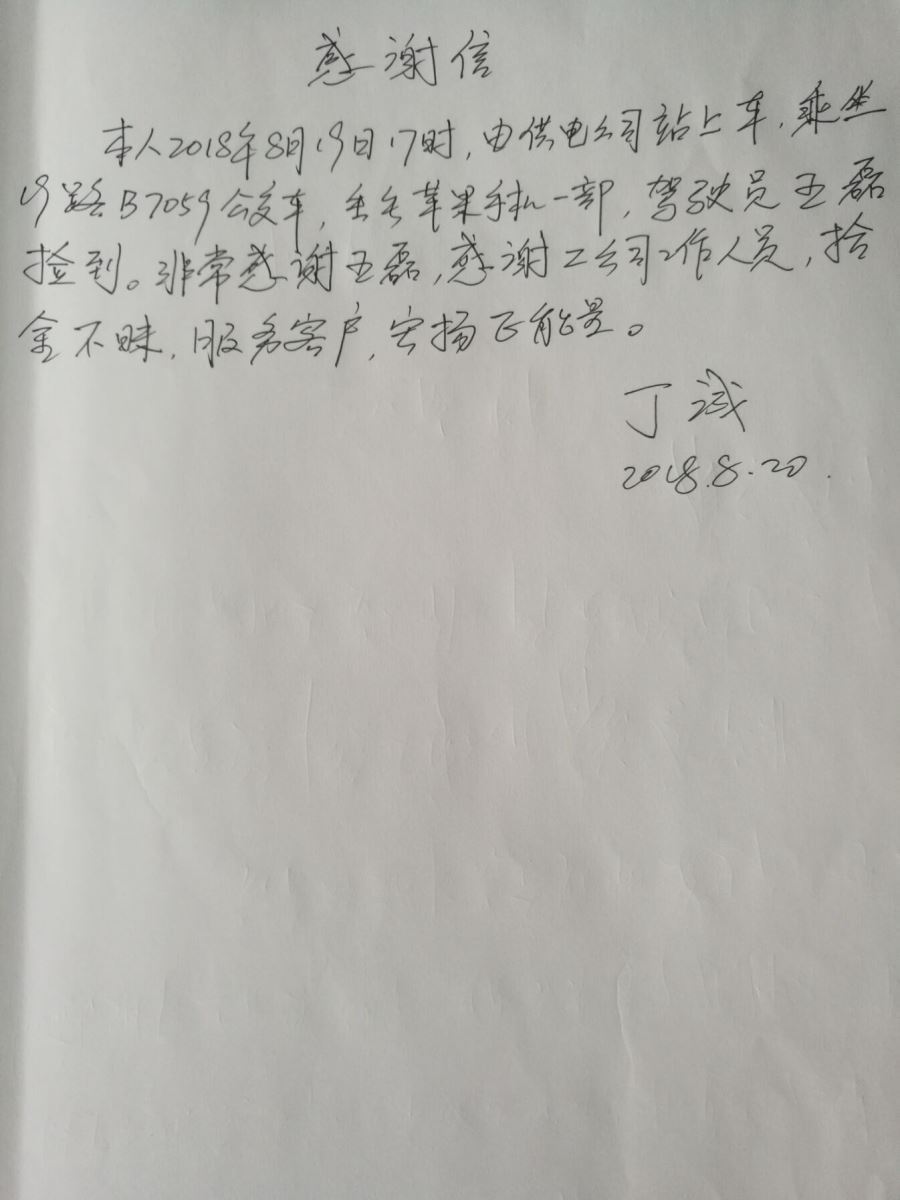 感谢信
本人2018年8月19日17时,由供电公司站上车,乘坐
19路B7059公交车,丢失苹果手机一部,驾驶员王磊
捡到。非常感谢王磊,感谢二公司工作人员,拾
金不昧,服务客户,宏扬正能量。
丁诚
2018.8.20.